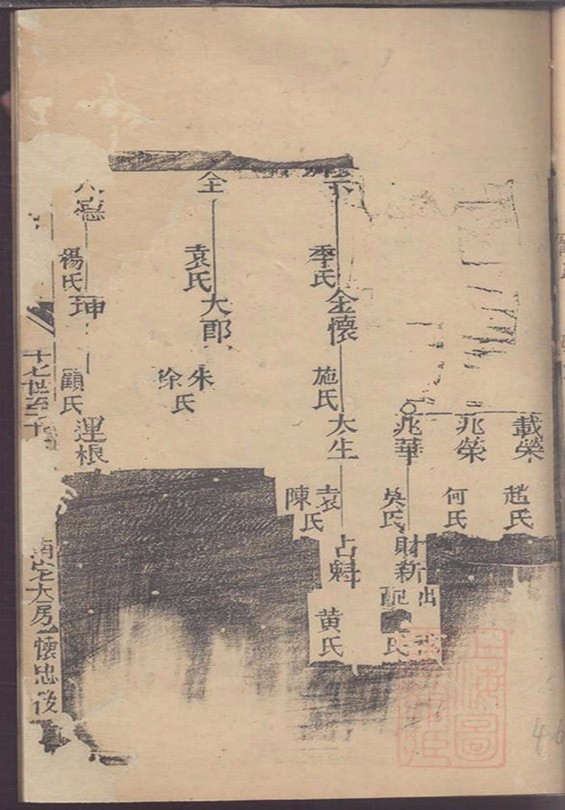 載榮
趙氏
兆榮
何氏
兆華
吳氏
財新
出
配
氏
季氏
金懷
施氏
大生
袁氏
陳
占魁
黃氏
全
袁氏
大郎
朱氏
徐
德
楊氏
珅
顧氏
運根
十七世至二十
南宅大房懷忠後
46